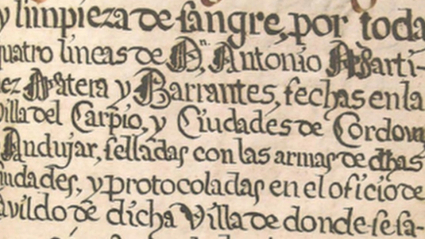 y limpieza de sangre, por toda
quatro lineas de Dn. Antonio Marti-
ez Matera y Barrantes, fechas en la
Villa del Carpio, y Ciudades de Cordova
Andujar, selladas con las armas de dhas
iudades, y protocoladas en el oficio de
avildo de dicha Villa de donde se sa-